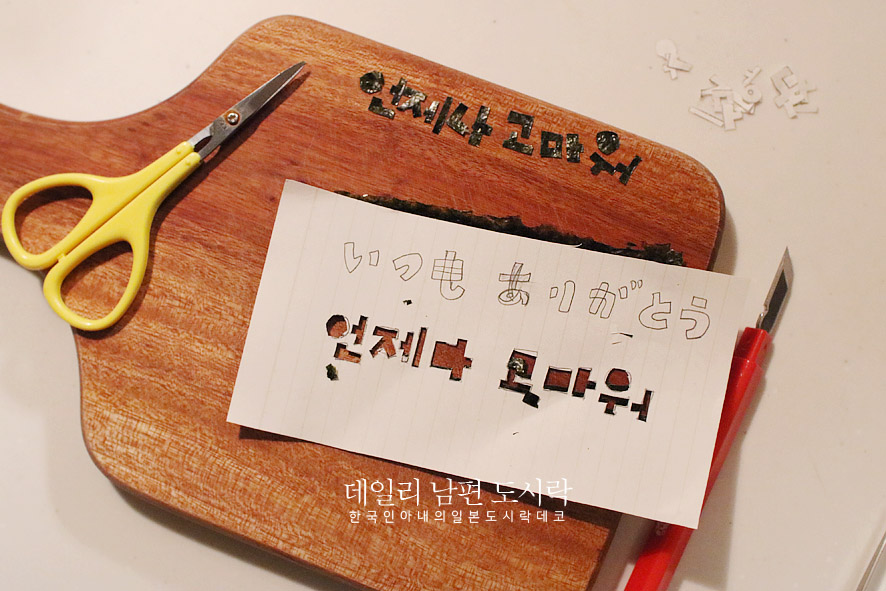 언제나 고마워
いつも ありがとう
언제나 고마워
데일리 남편 도시락
한국인아내의일본도시락데코